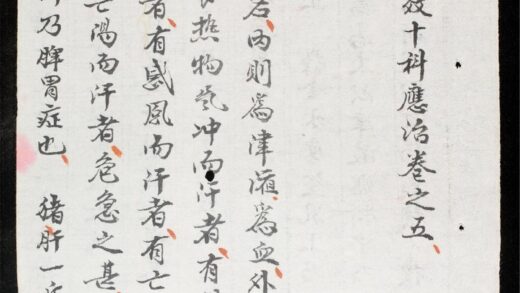 效十科應治卷之五
内則爲津液爲血外
热物氣冲而汗者有
者有感風而汗者有亡
亡陽而汗者危急之甚
乃脾胃症也 猪肝一